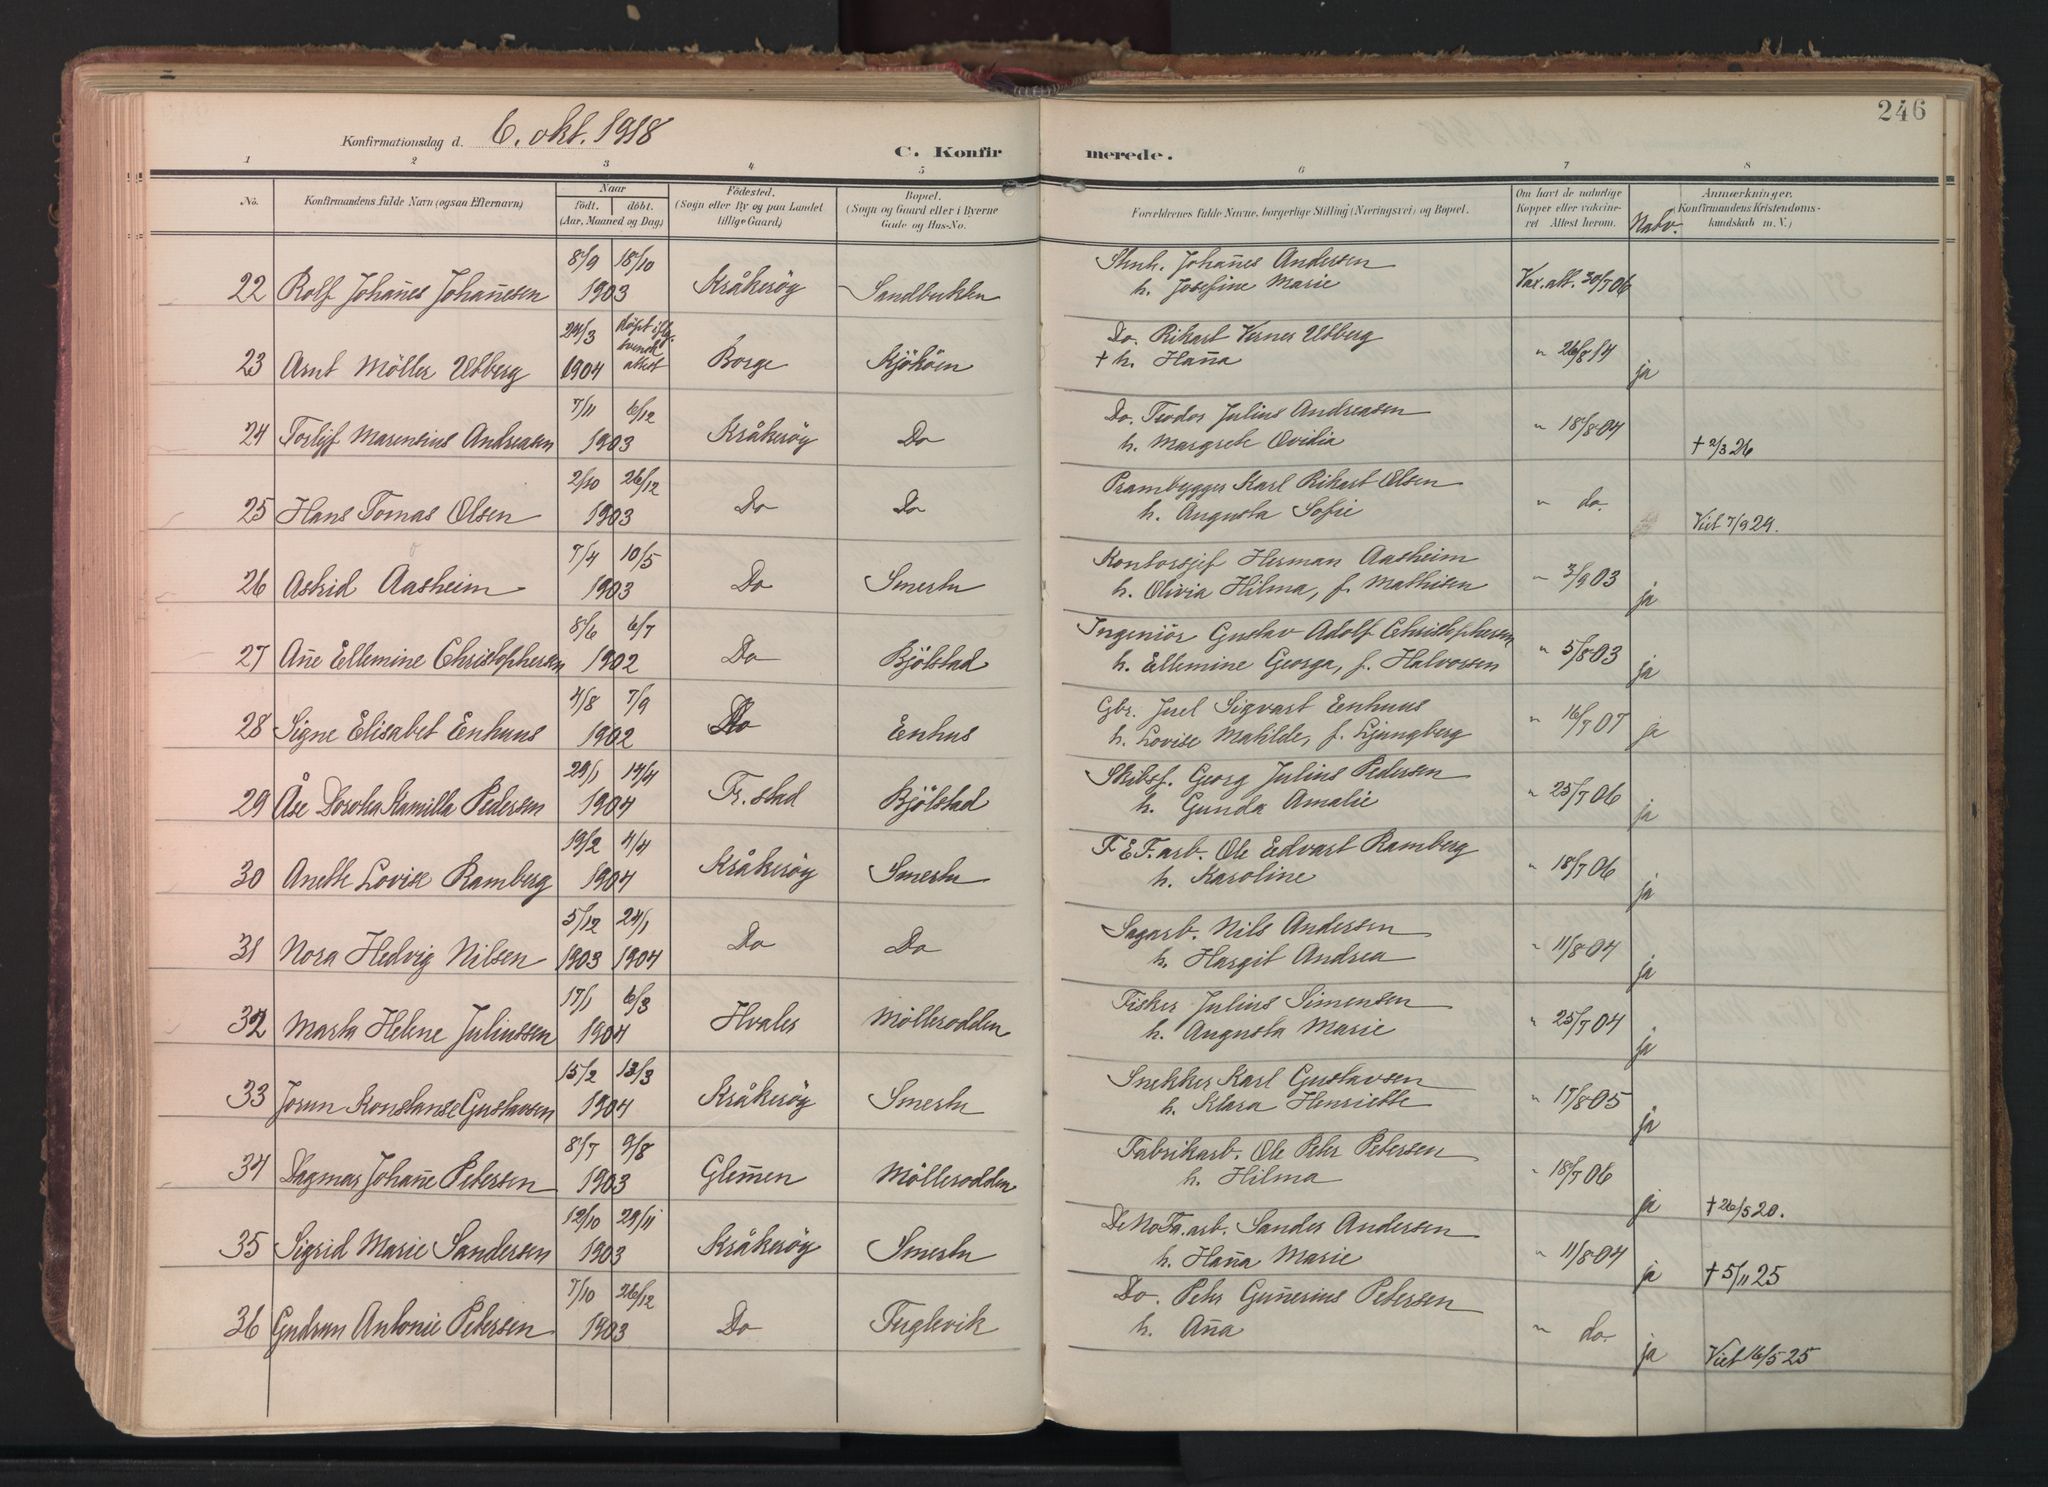 246
Konfirmationsdag d. 6. okt. 1918
C. Konfirmerede.
1 2 3 4 5 6 7 8
No. Konfirmandens fulde Navn (ogsaa Efternavn) Naar født. døbt. (Aar, Maaned og Dag) Fødested. (Sogn eller By og paa Landet tillige Gaard) Bopæl. (Sogn og Gaard eller i Byerne Gade og Hus-No. Forældrenes fulde Navne, borgerlige Stilling (Næringsvei) og Bopæl. Om havt de naturlige Kopper eller vaccineret Attest herom. Nabv. Anmærkninger. Konfirmandens Kristendomskundskab m. V.)
22 Rolf Johan̄es Johan̄esen 8/9 18/10 1903 Kråkerøy Sandbukten Stenh. Johan̄es Andersen
h. Josefine Marie Vax. att. 30/7 06
23 Arnt Möller Utberg 24/3 1904 döpt iflg. svensk attest Borge Kjøköen Do. Rikart Verner Utberg
+ h. Han̄a " 26/8 14 ja
24 Torleif Marensius Andreasen 7/11 6/12 1903 Kråkeröy Do Do. Teodor Julius Andreasen
h. Margrete Ovidia " 18/8 04 † 2/3 26
25 Hans Tomas Olsen 2/10 26/12 1903 Do Do Prambygger Karl Rikart Olsen
h. Augusta Sofie " do. Viet 7/9 29.
26 Astrid Aasheim 7/4 10/5 1903 Do Smertu Kontorsjef Herman Aasheim
h. Olivia Hilma, f. Mathisen " 3/9 03 ja
27 An̄e Ellemine Christophersen 8/6 6/7 1902 Do Bjölstad Ingeniör Gustav Adolf Christophersen
h. Ellemine Georga, f. Halvorsen " 5/8 03 ja
28 Signe Elisabet Enhuus 4/8 7/9 1902 Do Enhus Gbr. Juel Sigvart Enhuus
h. Lovise Matilde, f. Ljungberg " 16/7 07 ja
29 Åse Dorotea Kamilla Pedersen 29/1 14/4 1904 Fr.stad Bjölstad Skibsf. Georg Julius Pedersen
h. Gunda Amalie " 25/7 06 ja
30 Anette Lovise Ramberg 19/2 4/4 1904 Kråkeröy Smertu F.E.F. arb. Ole Edvart Ramberg
h. Karoline " 18/7 06 ja
31 Nora Hedvig Nilsen 5/12 1903 24/1 1904 Do Do Sagarb. Nils Andersen
h. Hargit Andrea " 11/8 04 ja
32 Marta Helene Juliussen 17/1 6/3 1904 Hvaler Möllerodden Fisker Julius Simensen
h. Augusta Marie " 25/7 04 ja
33 Jorun Konstanse Gustavsen 15/2 13/3 1904 Kråkeröy Smertu Snekker Karl Gustavsen
h. Klara Henriette " 17/8 05 ja
34 Dagmar Johan̄e Petersen 8/7 9/8 1903 Glem̄en Möllerodden Fabrikarb. Ole Peter Petersen
h. Hilma " 18/7 06 ja † 26/5 20.
35 Sigrid Marie Sandersen 12/10 29/11 1903 Kråkeröy Smertu De No Fa. arb. Sander Andersen
h. Han̄a Marie " 11/8 04 ja † 5/11 25
36 Gudrun Antonie Petersen 7/10 26/12 1903 Do Fuglevik Do. Peter Gun̄erius Petersen
h. An̄a " do. ja Viet 16/5 25